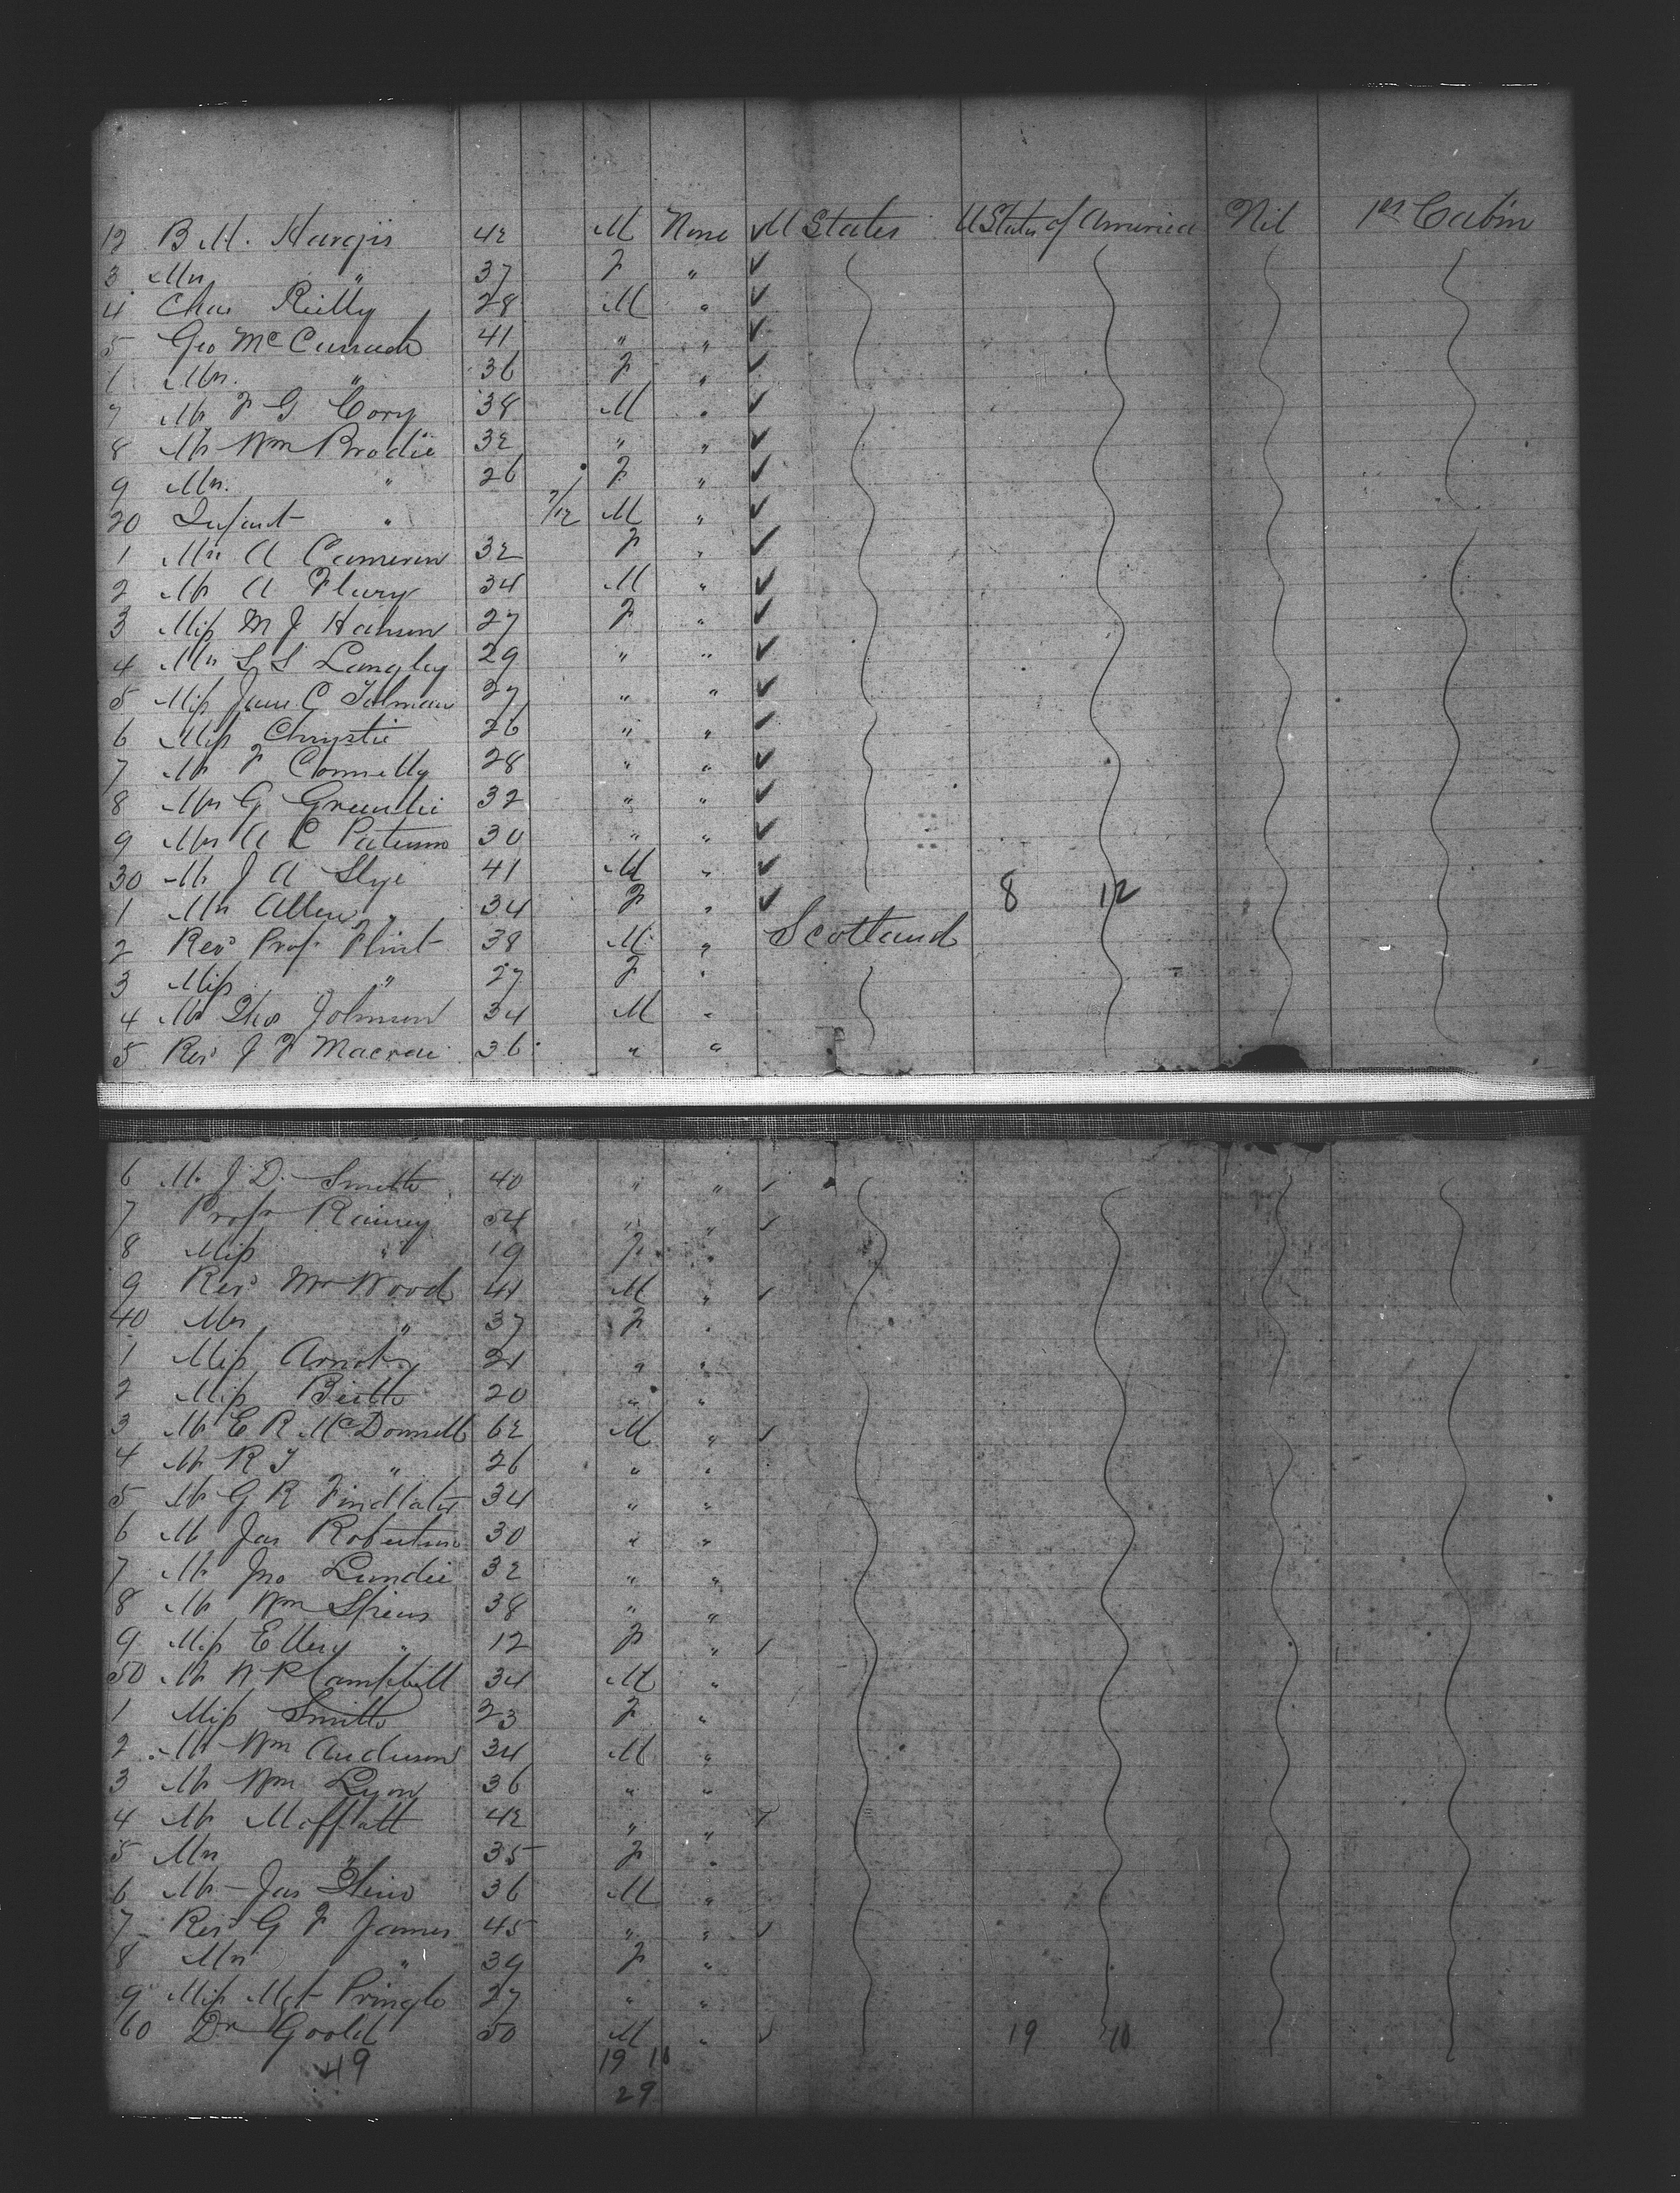 12 B M. Hargis 42 M None ✓ U States U States of America Nil 1st Cabin
3 Mrs " 37 F " ✓
4 Chas Reilly 28 M " ✓
5 Geo McCurrach 41 " " ✓
6 Mrs. " 36 F " ✓
7 Mr F G Cory 38 M " ✓
8 Mr Wm Brodie 32 " " ✓
9 Mrs. " 26 F " ✓
20 Infant " 7/12 M " ✓
1 Mrs A Cameron 32 F " ✓
2 Mr A Flury 34 M " ✓
3 Miss M J Hanson 27 F " ✓
4 Mrs S S Langley 29 " " ✓
5 Miss Jane C Tolman 27 " " ✓
6 Miss Chrystie 26 " " ✓
7 Mr F Connelly 28 " " ✓
8 Mrs G Greenlie 32 " " ✓
9 Mrs A C Paterson 30 " " ✓
30 Mr J A Slye 41 M " ✓
1 Mrs Allen 34 F " ✓ 8 12
2 Revd Prof Flint 38 M " Scotland
3 Miss " 27 F "
4 Mr Thos Johnson 34 M "
5 Revd J F Macrae 36 " "
6 Mr J D. Smith 40 " " ✓
7 Profr Rainey 54 " " ✓
8 Miss " 19 F "
9 Revd Mr Wood 41 M " ✓
40 Mrs " 37 F "
1 Miss Arnot 21 " "
2 Miss 20 " "
3 Mr E R McDonnell 62 M " ✓
4 Mr R J " 26 " "
5 Mr G R Findlater 34 " "
6 Mr Jas Robertson 30 " "
7 Mr Jno Lundie 32 " "
8 Mr Wm Spiers 38 " "
9 Miss Ellery " 12 F " ✓
50 Mr W R Campbell 34 M "
1 Miss Smith 23 F "
2 Mr Wm Anderson 34 M "
3 Mr Wm Lyon 36 " "
4 Mr Moffatt 42 " "
5 Mrs " 35 F "
6 Mr Jas 36 M "
7 Revd G F James 45 " " ✓
8 Mrs " 39 F "
9 Miss Mgt Pringle 27 " "
60 Dr Goold 50 M " ✓ 19 10
49 19 10
29